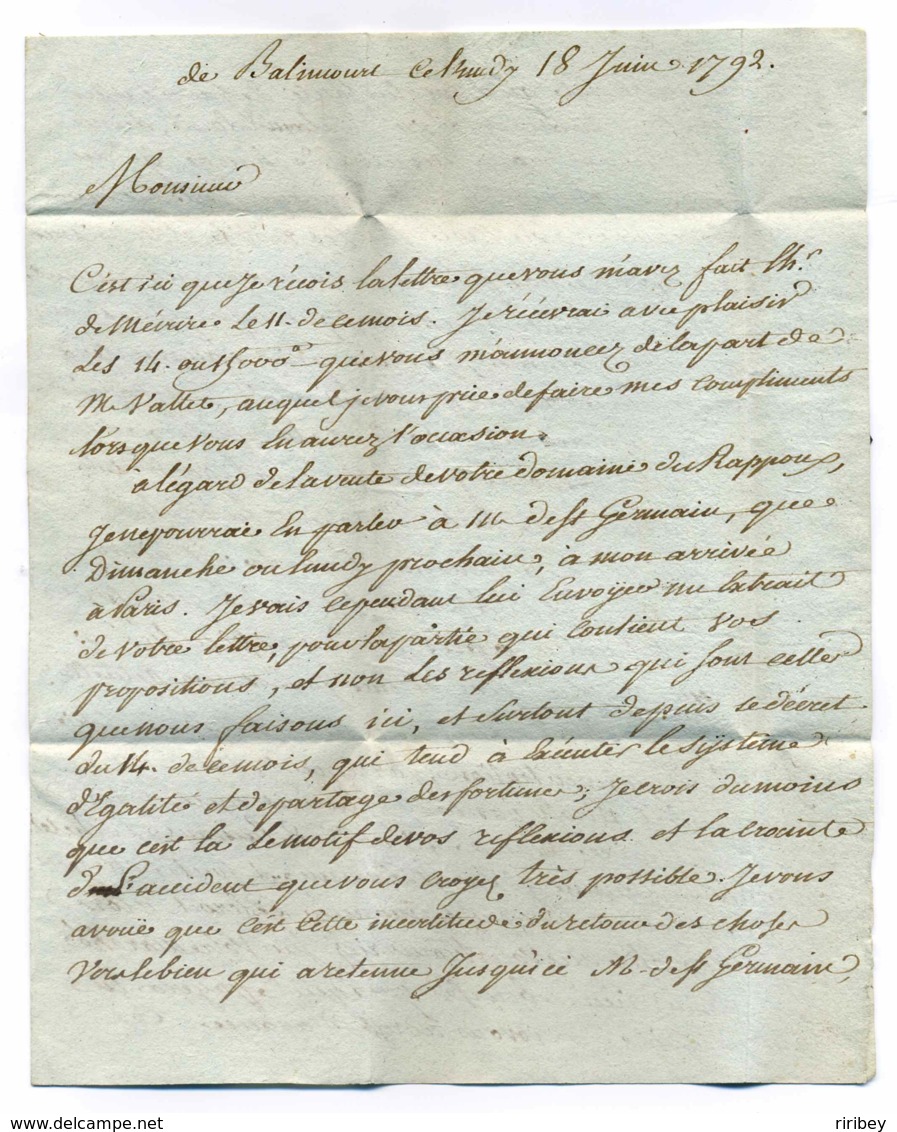 de Balincourt ce lundy 18 Juin 1792.
Monsieur
C'est ici que Je réçois la lettre que vous m'avez fait lh.r
de M'écrire Le 11. de ce mois. Je récévrai avec plaisir
Les 14. ou 15000# que vous m'annoncez de la part de
M Vallet, auquel je vous prie de faire mes Compliments
lorsque Vous En aurez l'occasion.
à l'égard de la vente de votre domaine du Rappoux,
Je ne pourrai En parler à M de St Germain, que
Dimanche ou lundy prochain, à mon arrivée
a Paris. Je vais cependant lui Envoyer un Extrait
de votre lettre, pour la partie qui contient vos
propositions, et non Les réflexions qui sont celles
que nous faisons ici, et surtout depuis le décret
du 14. de ce mois, qui tend à Exécuter le système
d'Egalité et de partage des fortunes; Je crois du moins
que c'est la Le motif de vos réflexions et la crainte
de l'accident que vous croyez très possible. Je vous
avoüe que c'est cette incertitude du retour des choses
Vers le bien qui a retenu Jusqu'ici M. de St Germain,
riribey